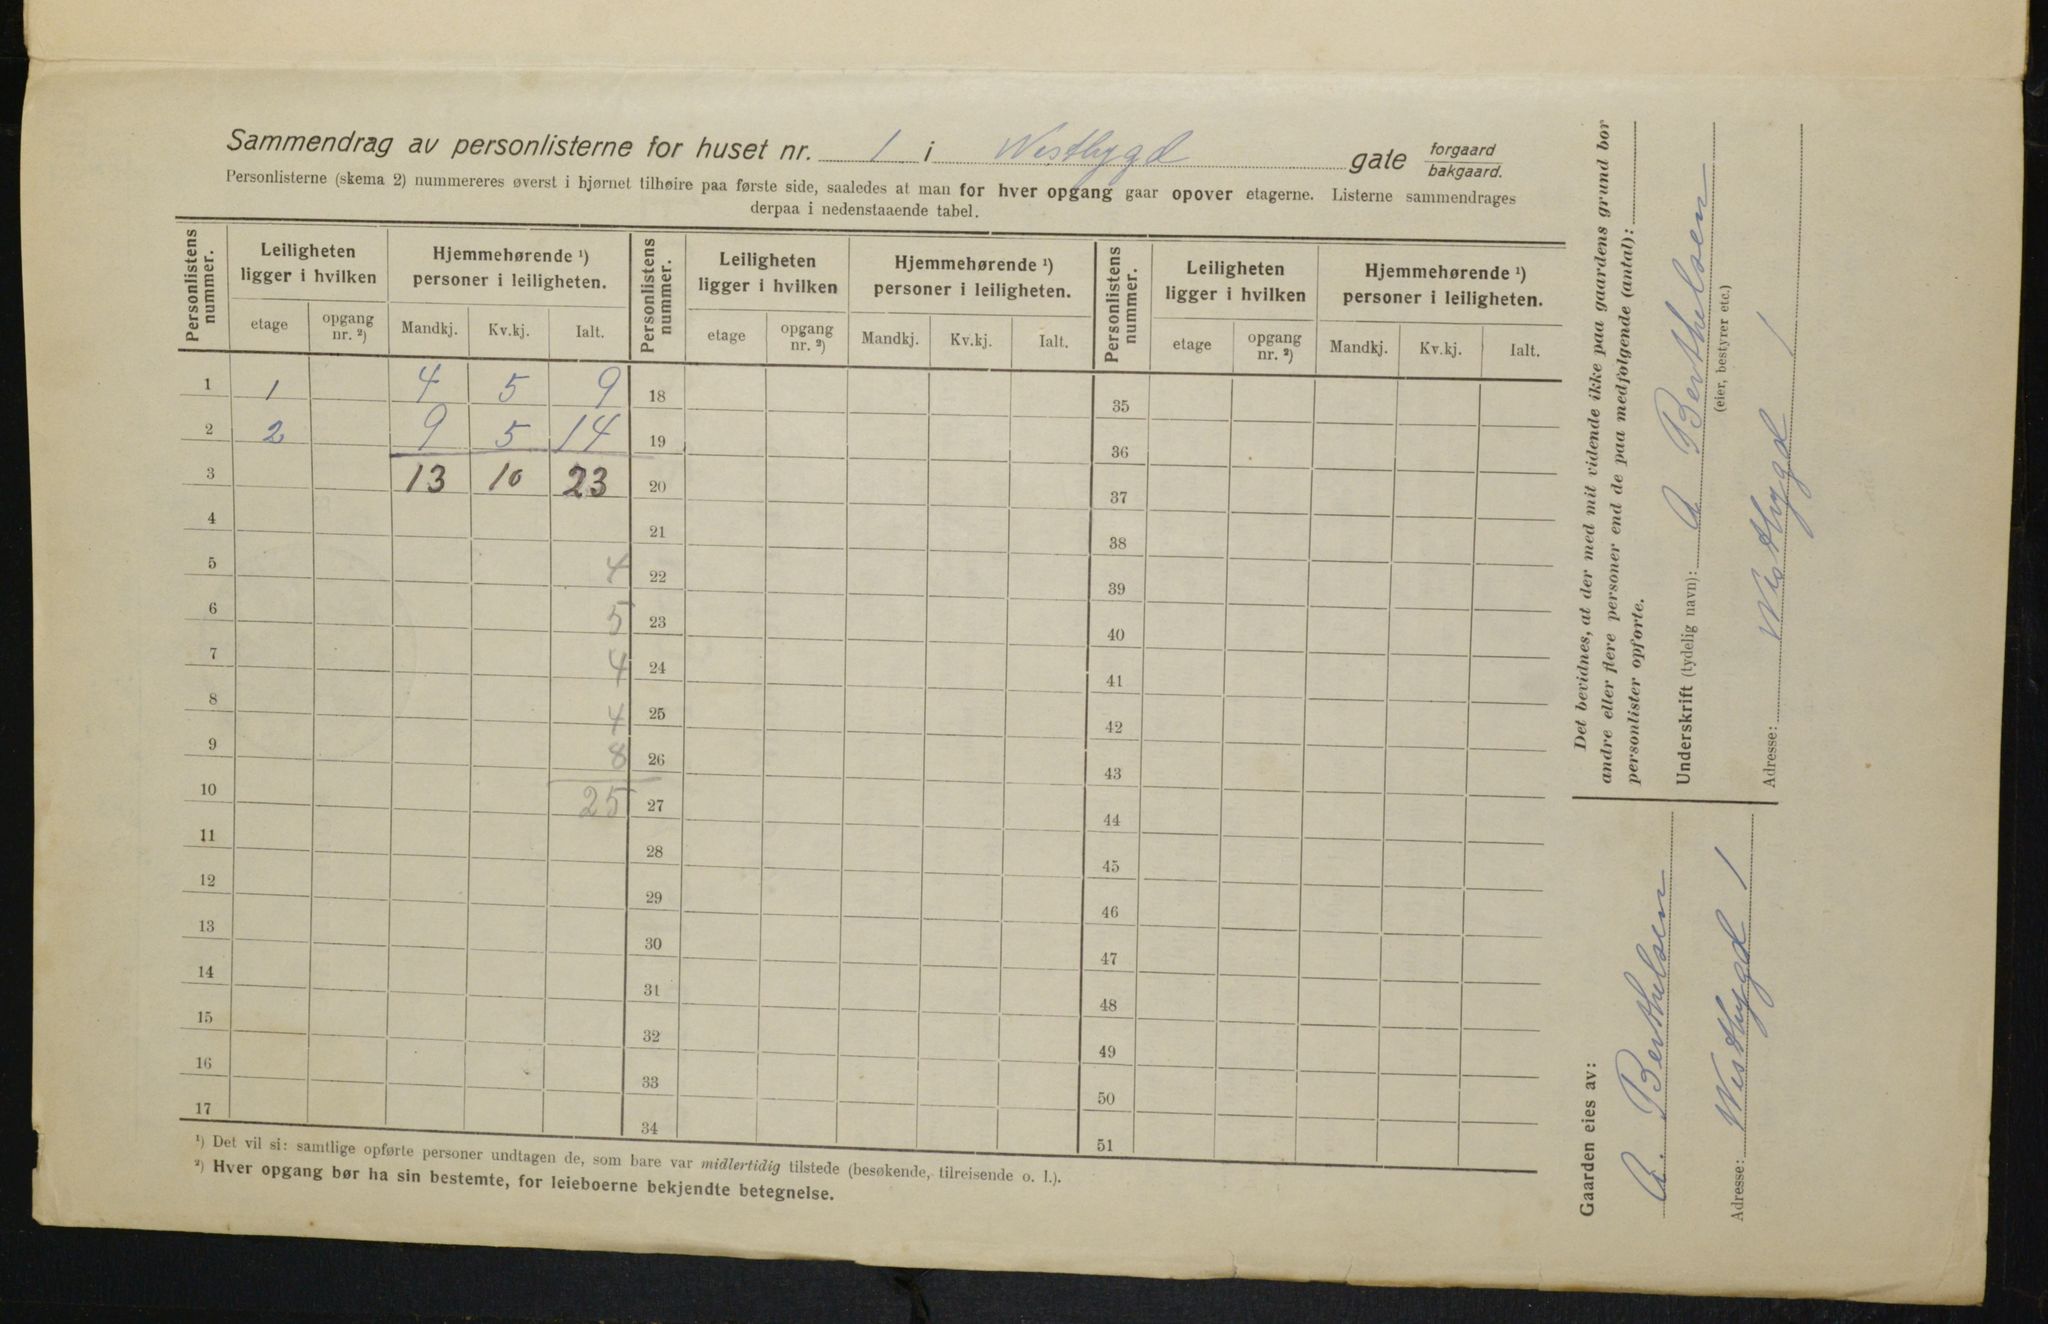 Sammendrag av personlisterne for huset nr. 1 i Westbygd gate forgaard bakgaard.
Personlisterne (skema 2) nummereres øverst i hjørnet tilhøire paa første side, saaledes at man for hver opgang gaar opover etagerne. Listerne sammendrages
derpaa i nedenstaaende tabel.
Personlistens nummer. Leiligheten ligger i hvilken Hjemmehørende ¹) personer i leiligheten. Personlistens nummer. Leiligheten ligger i hvilken Hjemmehørende ¹) personer i leiligheten. Personlistens nummer. Leiligheten ligger i hvilken Hjemmehørende ¹) personer i leiligheten.
etage opgang nr. ²) Mandkj. Kv.kj. Ialt. etage opgang nr. ²) Mandkj. Kv.kj. Ialt. etage opgang nr. ²) Mandkj. Kv.kj. Ialt.
1 1 4 5 9 18 35
2 2 9 5 14 19 36
3 13 10 23 20 37
4 21 38
5 4 22 39
6 5 23 40
7 4 24 41
8 4 25 42
9 8 26 43
10 25 27 44
11 28 45
12 29 46
13 30 47
14 31 48
15 32 49
16 33 50
17 34 51
¹) Det vil si: samtlige opførte personer undtagen de, som bare var midlertidig tilstede (besøkende, tilreisende o. l.).
²) Hver opgang bør ha sin bestemte, for leieboerne bekjendte betegnelse.
Det bevidnes, at der med mit vidende ikke paa gaardens grund bor
andre eller flere personer end de paa medfølgende (antal):
personlister opførte.
Underskrift (tydelig navn): A Berthelsen
(eier, bestyrer etc.)
Adresse: Westbygd 1
Gaarden eies av:
A. Berthelsen
Adresse: Westbygd 1